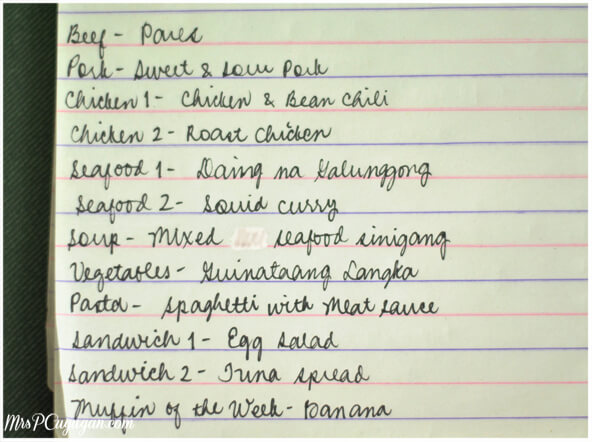 Beef - Pares
Pork - Sweet & Sour Pork
Chicken 1 - Chicken & Bean Chili
Chicken 2 - Roast Chicken
Seafood 1 - Daing na Galunggong
Seafood 2 - Squid curry
Soup - Mixed seafood sinigang
Vegetables - Guinataang Langka
Pasta - Spaghetti with Meat Sauce
Sandwich 1 - Egg Salad
Sandwich 2 - Tuna spread
Muffin of the Week - Banana
MrsPCuyugan.com